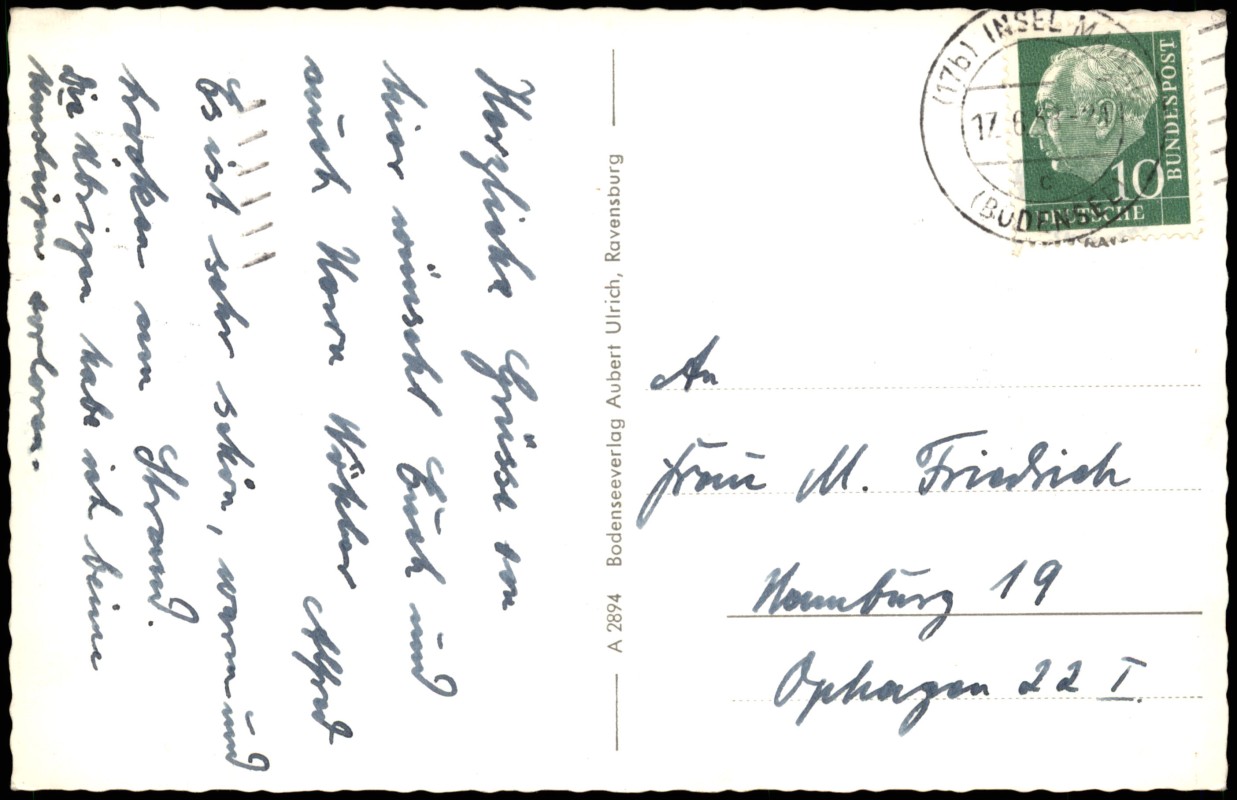 Herzliche Grüsse von
hier wünscht Euch und
auch
Alfred
Es ist sehr schön, warm und
trocken am Strand.
Die übrigen habe ich keine
verloren.
A 2894 Bodenseeverlag Aubert Ulrich, Ravensburg
(17b) INSEL MAINAU
(BODENSEE)
c
10
DEUTSCHE
BUNDESPOST
An
Frau M. Friedrich
Hamburg 19
Ophagen 22 I.